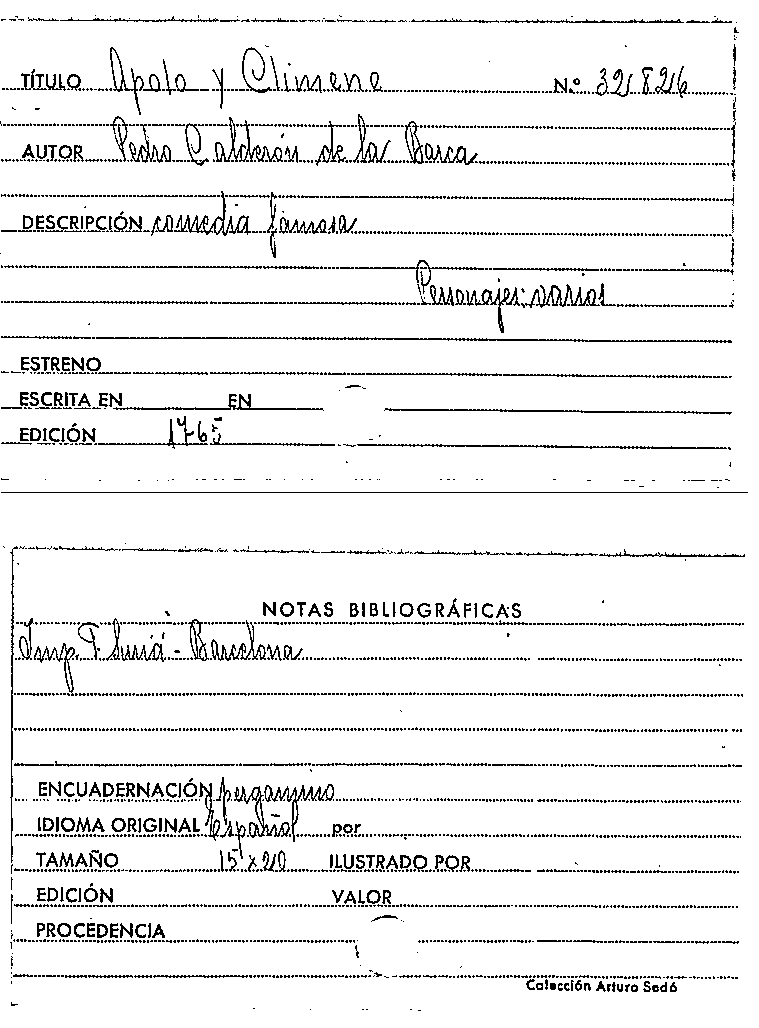 TÍTULO Apolo y Climene N.º 32826
AUTOR Pedro Calderón de la Barca
DESCRIPCIÓN comedia famosa
Personajes: varios
ESTRENO
ESCRITA EN EN
EDICIÓN 1765
NOTAS BIBLIOGRÁFICAS
Imp. F. Suriá - Barcelona
ENCUADERNACIÓN pergamino
IDIOMA ORIGINAL Español por
TAMAÑO 15 x 20 ILUSTRADO POR
EDICIÓN VALOR
PROCEDENCIA
Colección Arturo Sedó